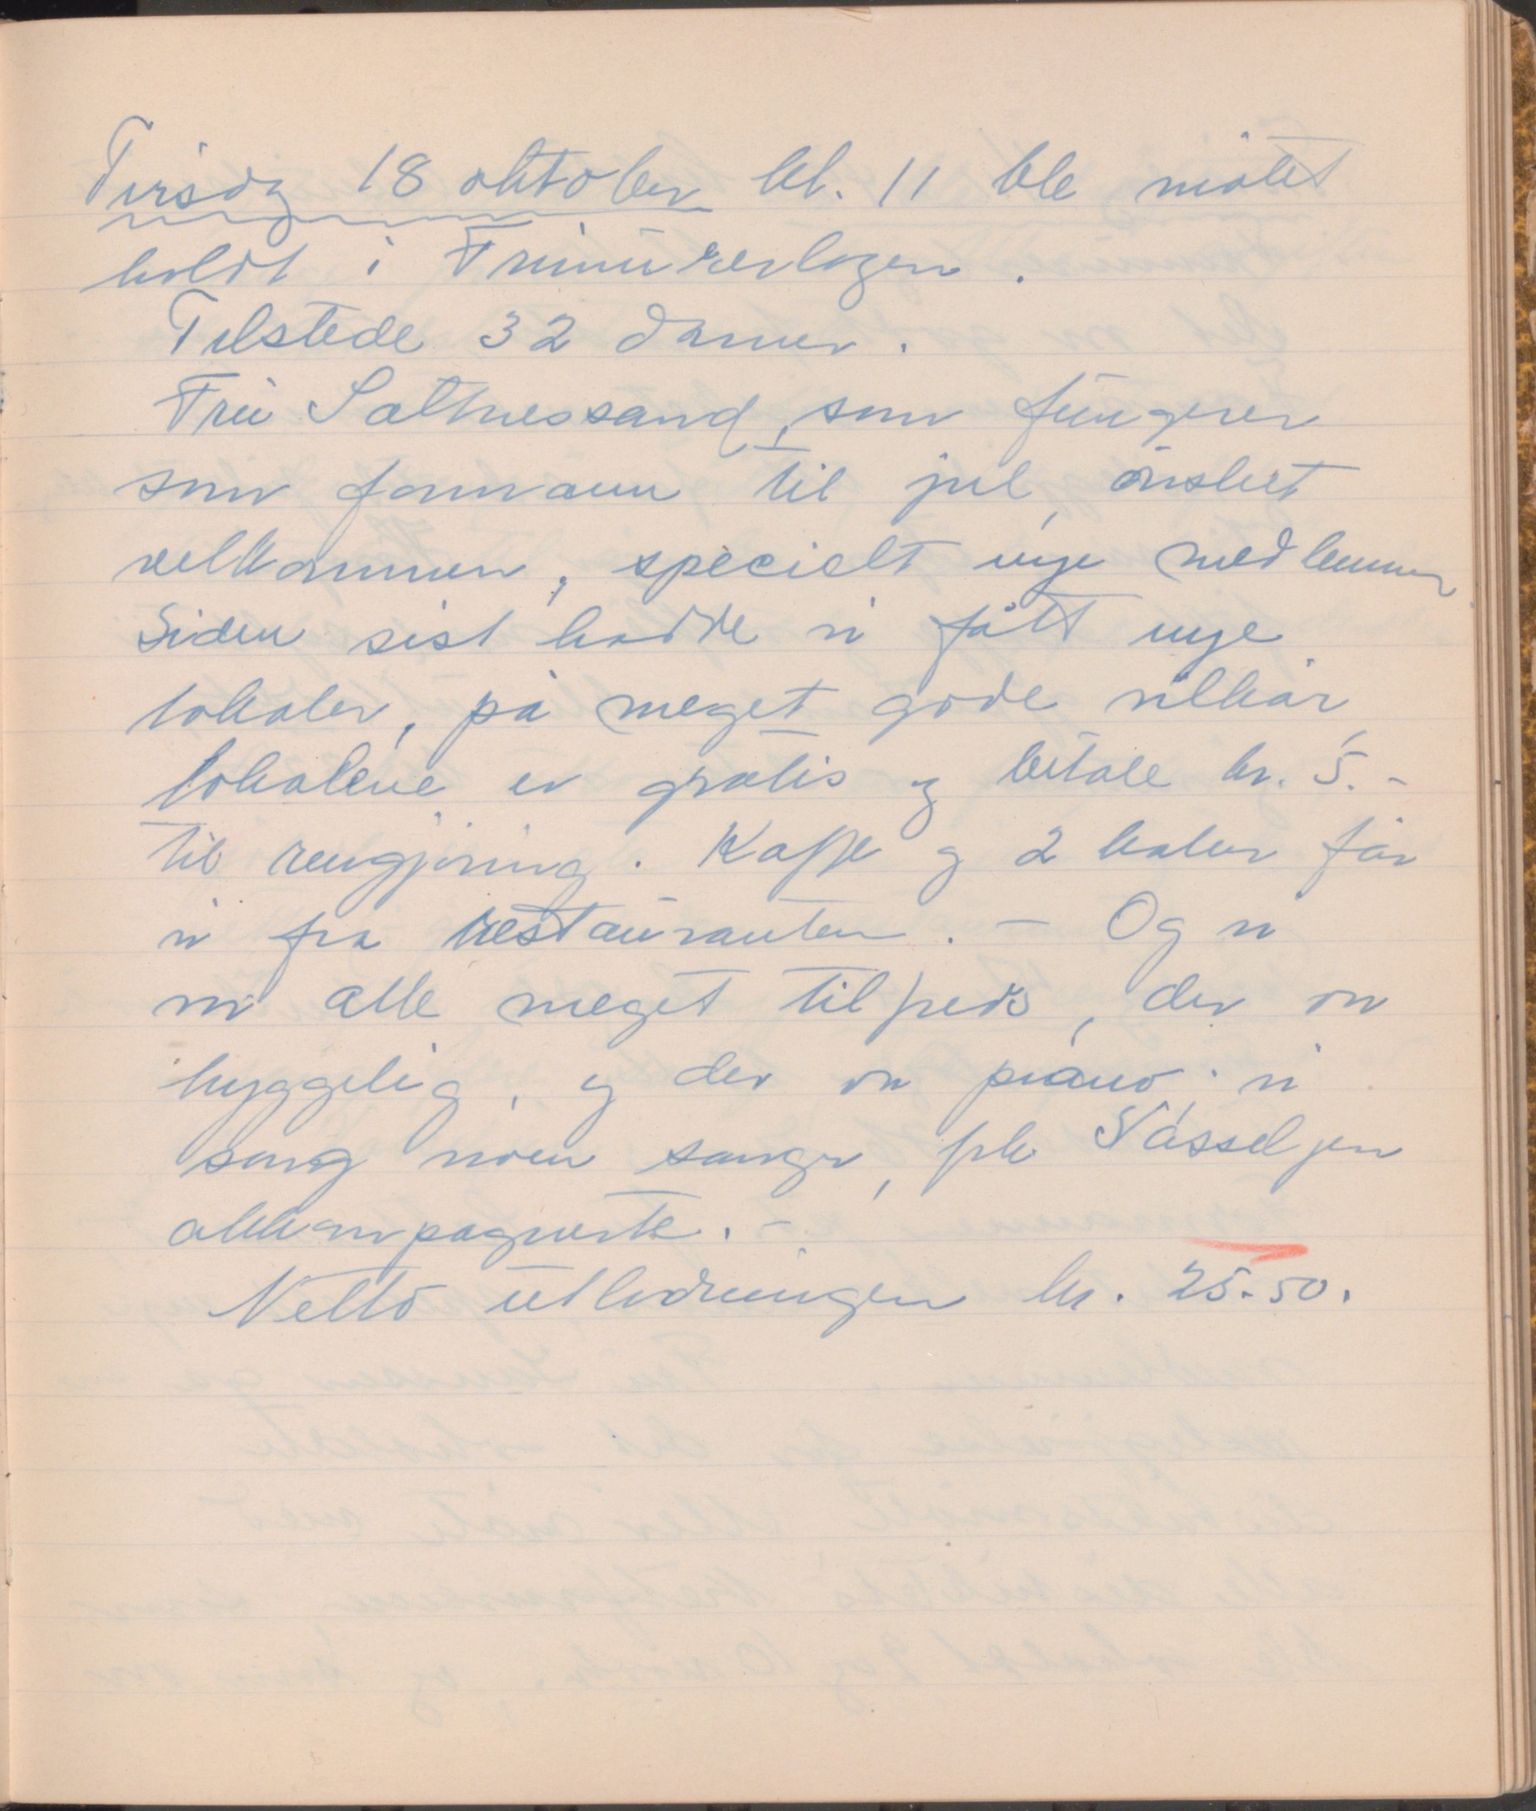 Tirsdag 18 oktober kl. 11 ble møtet
holdt i Frimurerlogen.
Tilstede 32 damer.
Fru Sæthnessand, som fungerer
som formann til jul, ønsket
velkommen, specielt nye medlemmer
Siden sist hadde vi fått nye
lokaler, på meget gode vilkår,
lokalene er gratis og betale kr. 5.-
til rengjøring. Kaffe og 2 kaker får
vi fra restauranten. - Og vi
var alle meget tilfreds, der var
hyggelig, og der var piano, vi
sang noen sanger, frk Vasseljen
akkompagnerte. -
Netto utlodningen kr. 25.50.